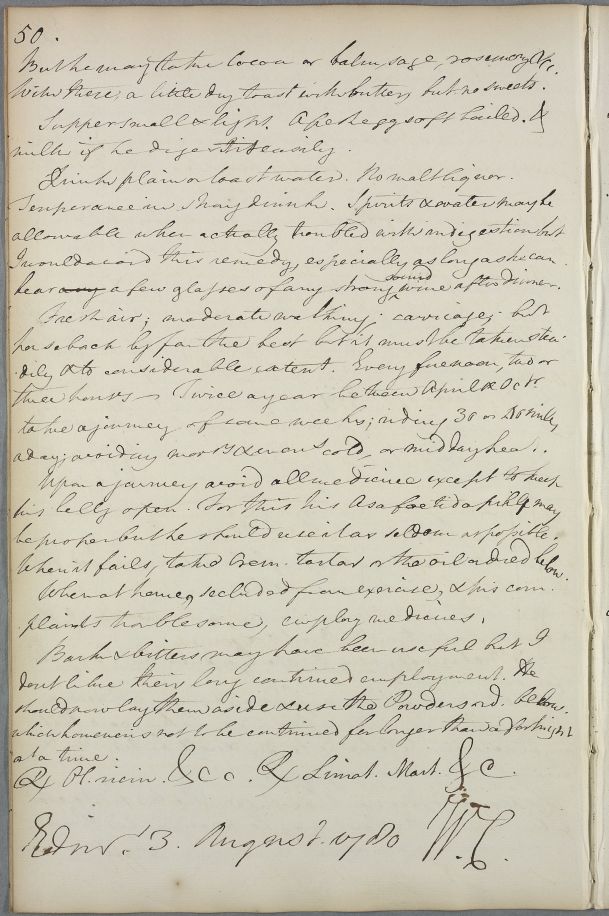 50.
But he may take Cocoa or balm, sage, rosemary &c.
With these, a little dry toast with butter, but no sweets.
Supper small & light. A fresh egg soft boiled. &
milk if he digest it easily.
Drink plain or toast water. No malt liquor.
Temperance in strong drink. Spirits & water may be
allowable when actually troubled with indigestion but
I would avoid this remedy, especially as long as he can
bear any a few glasses of any strong sound wine after dinner.
Fresh air; moderate walking; carriage; but
horseback by far the best but it must be taken stea-
dily & to considerable extent. Every forenoon, two or
three hours. Twice a year between April & Octr.
take a journey of some weeks; riding 30 or 40 miles
a day; avoiding morng & evens cold, or midday heat.
Upon a journey avoid all medicine except to keep
his belly open. For this his Asafoetida pills may
be proper but he should use it as seldom as possible.
When it fails, take Crem. tartar or the oil advised below.
When at home, secluded from exercise, & his com-
plaints troublesome, employ medicines.
Bark & bitters may have been useful but I
dont like their long continued employment. He
should now lay them aside & use the Powders ord. below.
which however is not to be continued for longer than a fortnight
at a time.
℞ Ol. ricin. &c c. ℞ Limat. Mart. &c.
Edinr. 3. August. 1780 W.C.